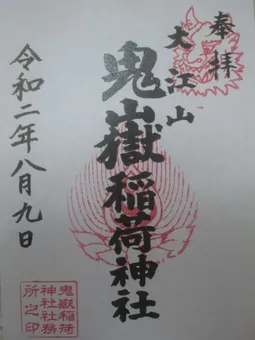 奉拝
大江山
鬼嶽稲荷神社
令和二年八月九日
鬼嶽稲荷
神社社務
所之印